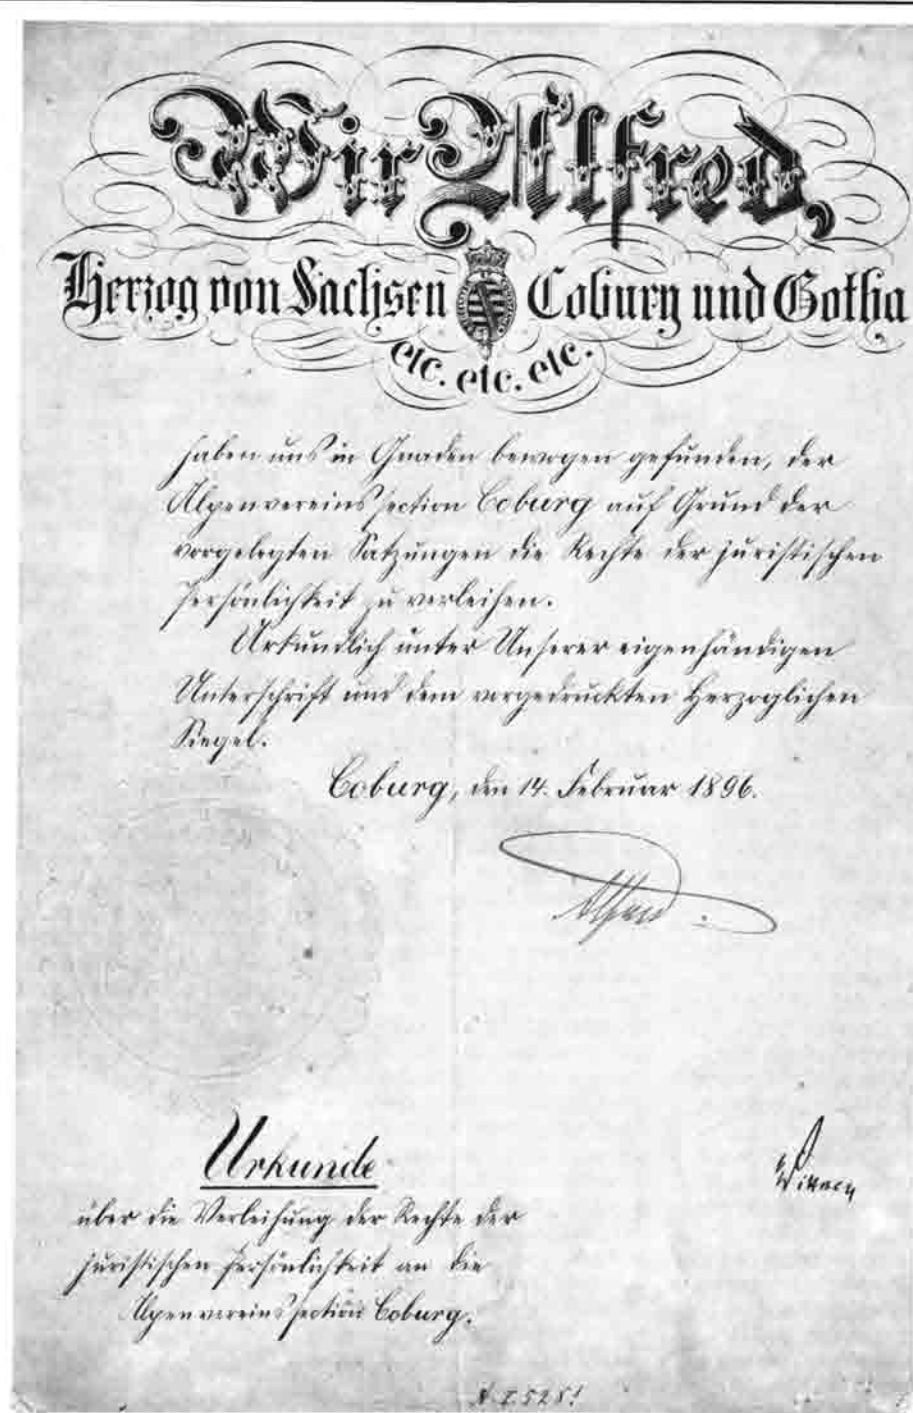 Wir Alfred,
Herzog von Sachsen Coburg und Gotha
etc. etc. etc.
haben uns in Gnaden bewogen gefunden, der
Alpenvereinssection Coburg auf Grund der
vorgelegten Satzungen die Rechte der juristischen
Persönlichkeit zu verleihen.
Urkundlich unter Unserer eigenhändigen
Unterschrift und dem vorgedruckten Herzoglichen
Siegel.
Coburg, den 14. Februar 1896.
Alfred
Urkunde
über die Verleihung der Rechte der
juristischen Persönlichkeit an die
Alpenvereinssection Coburg.